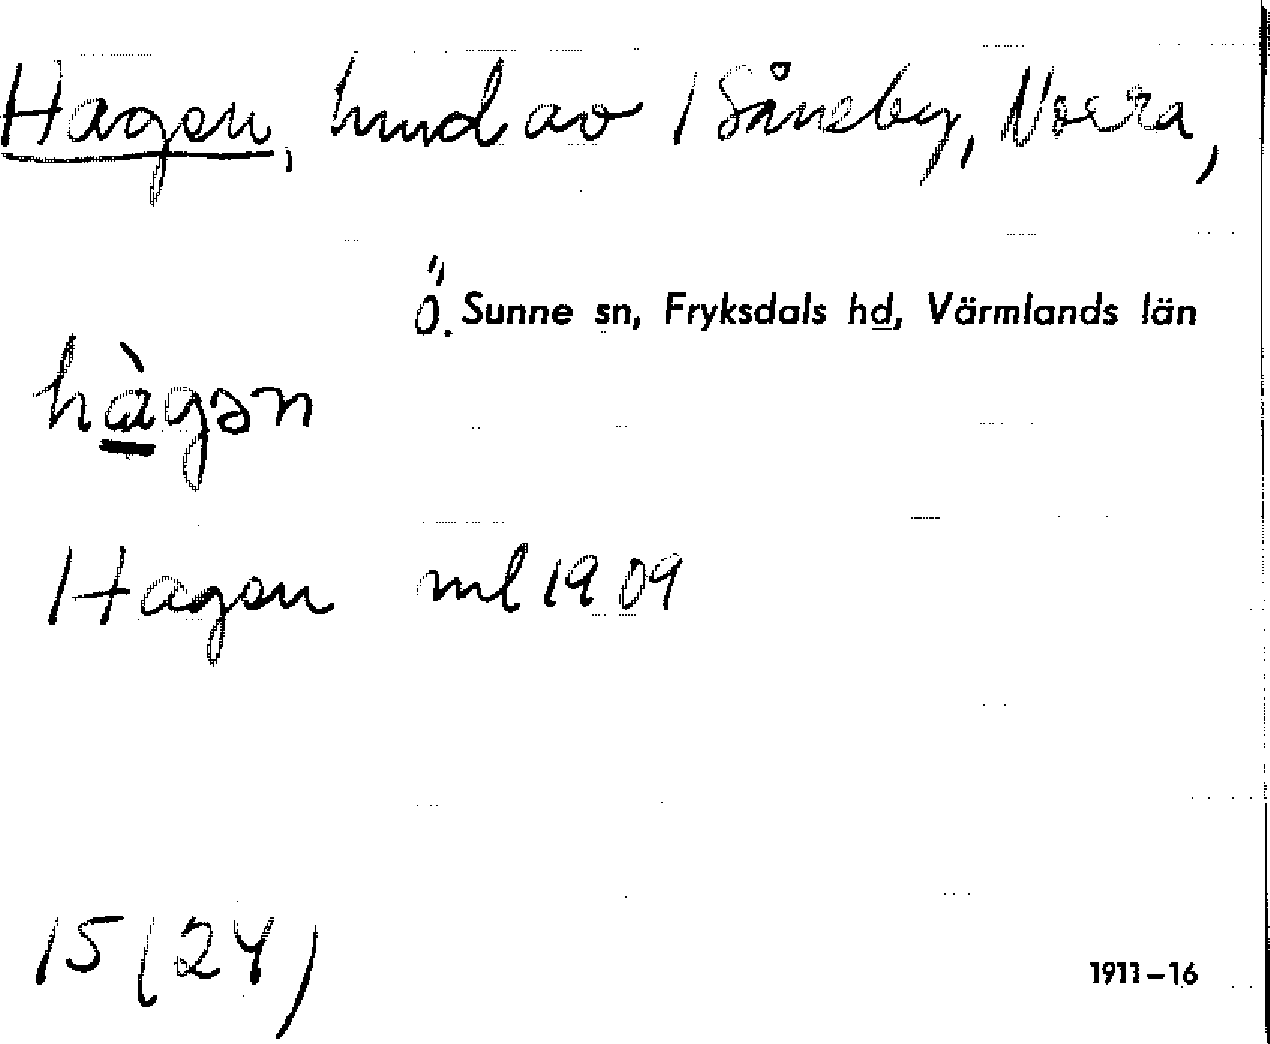 Hagen, hmd av 1 Såneby, Norra,
Ö. Sunne sn, Fryksdals hd, Värmlands län
hàgən
Hagen ml 1909
15 (24)
1911–16